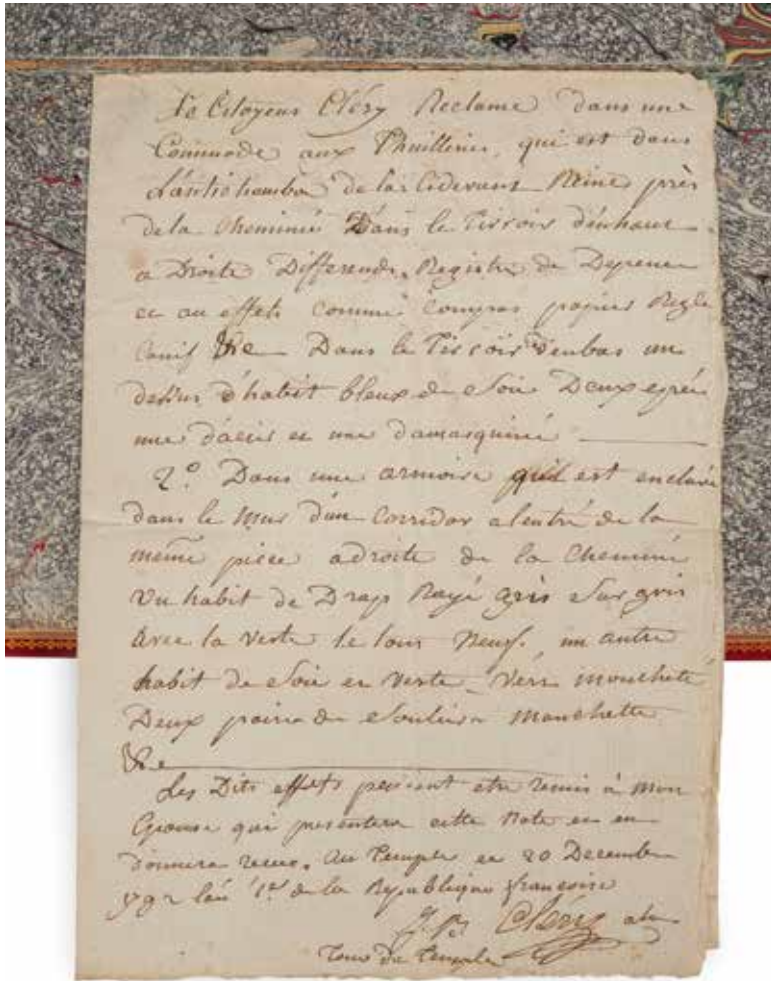 Le Citoyens Cléry Reclame dans une
Commode aux Thuilleries, qui est dans
L'antichambre de la Cidevant Reine près
de la Cheminée Dans le Tirroir d'enhaut
a Droite Differends Registre de Depence
et au effets comme Compas papier Regle
Canif &c Dans le Tirroir d'enbas un
dessus d'habit bleux de Soie Deux epée
une d'acier et une damasquinée
2.° Dans une armoire qui est enclavée
dans le Mur d'un Corridor a l'entré de la
même piece adroite de la Cheminé
Un habit de Drap Rayé gris Sur gris
Avec la Veste le tout Neuf, un autre
habit de Soie et Veste Vers moucheté
Deux paire de Soulier Manchette
&c
Les Dits effets peuvent etre remis à Mon
Epouse qui presentera cette Note et en
donnera recue. Au Temple ce 20 Decembre
1792 l'an 1er de la Republique françoise
Cléry a la
Tour du Temple